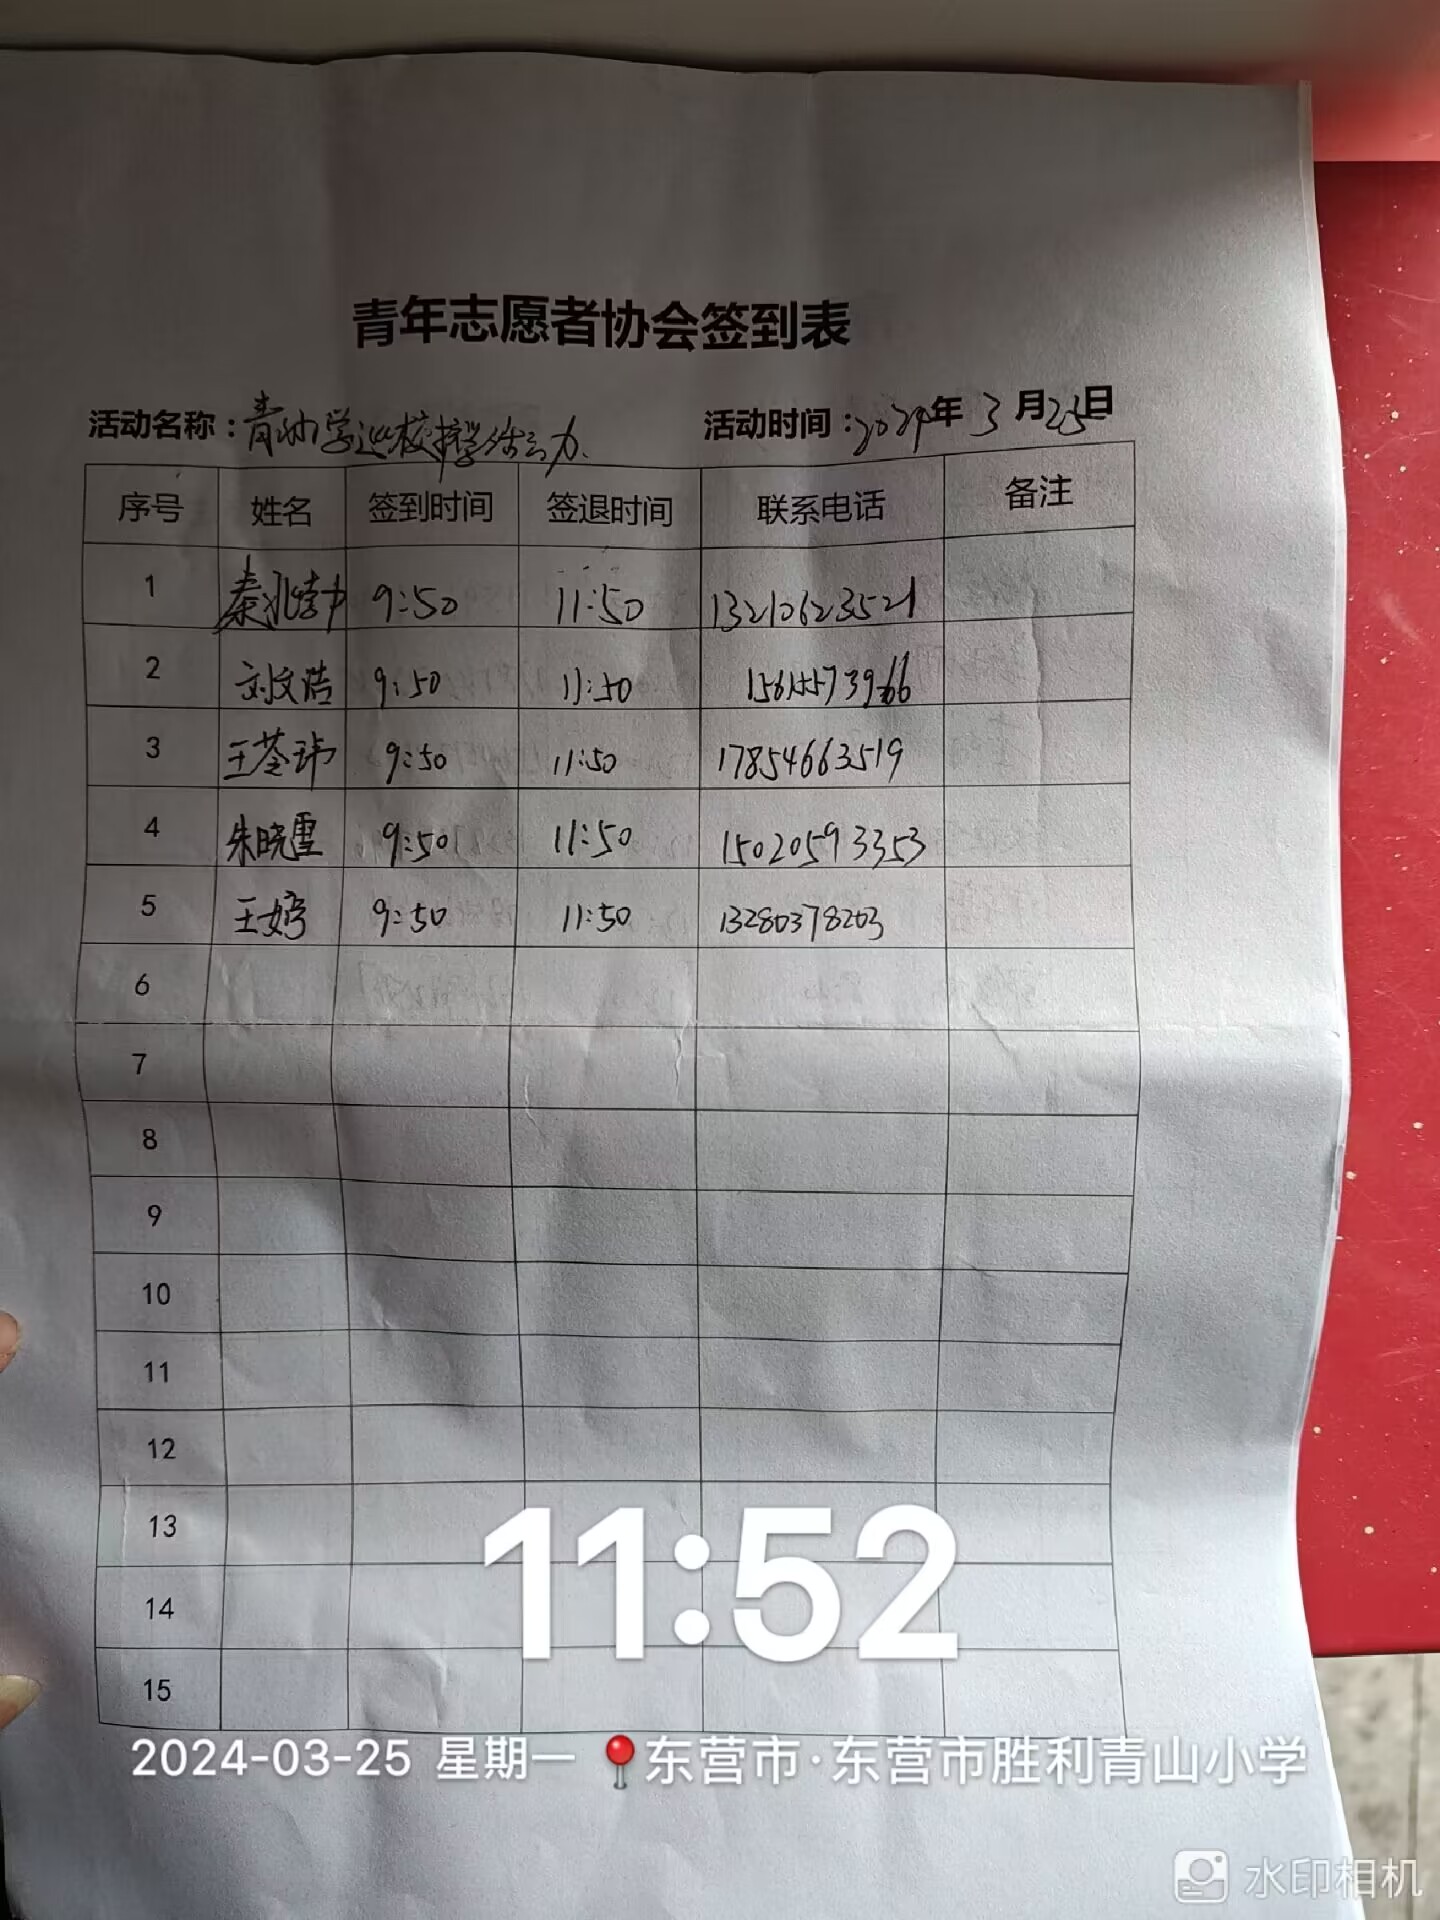 青年志愿者协会签到表
活动名称：青山小学 活动时间：2024年3月25日
序号 姓名 签到时间 签退时间 联系电话 备注
1 秦 9:50 11:50 13210623521
2 刘文浩 9:50 11:50 15615573966
3 王荃玮 9:50 11:50 17854663519
4 朱晓雪 9:50 11:50 15020593353
5 王婷 9:50 11:50 13280378203
6
7
8
9
10
11
12
13
14
15
11:52
2024-03-25 星期一 东营市·东营市胜利青山小学
水印相机